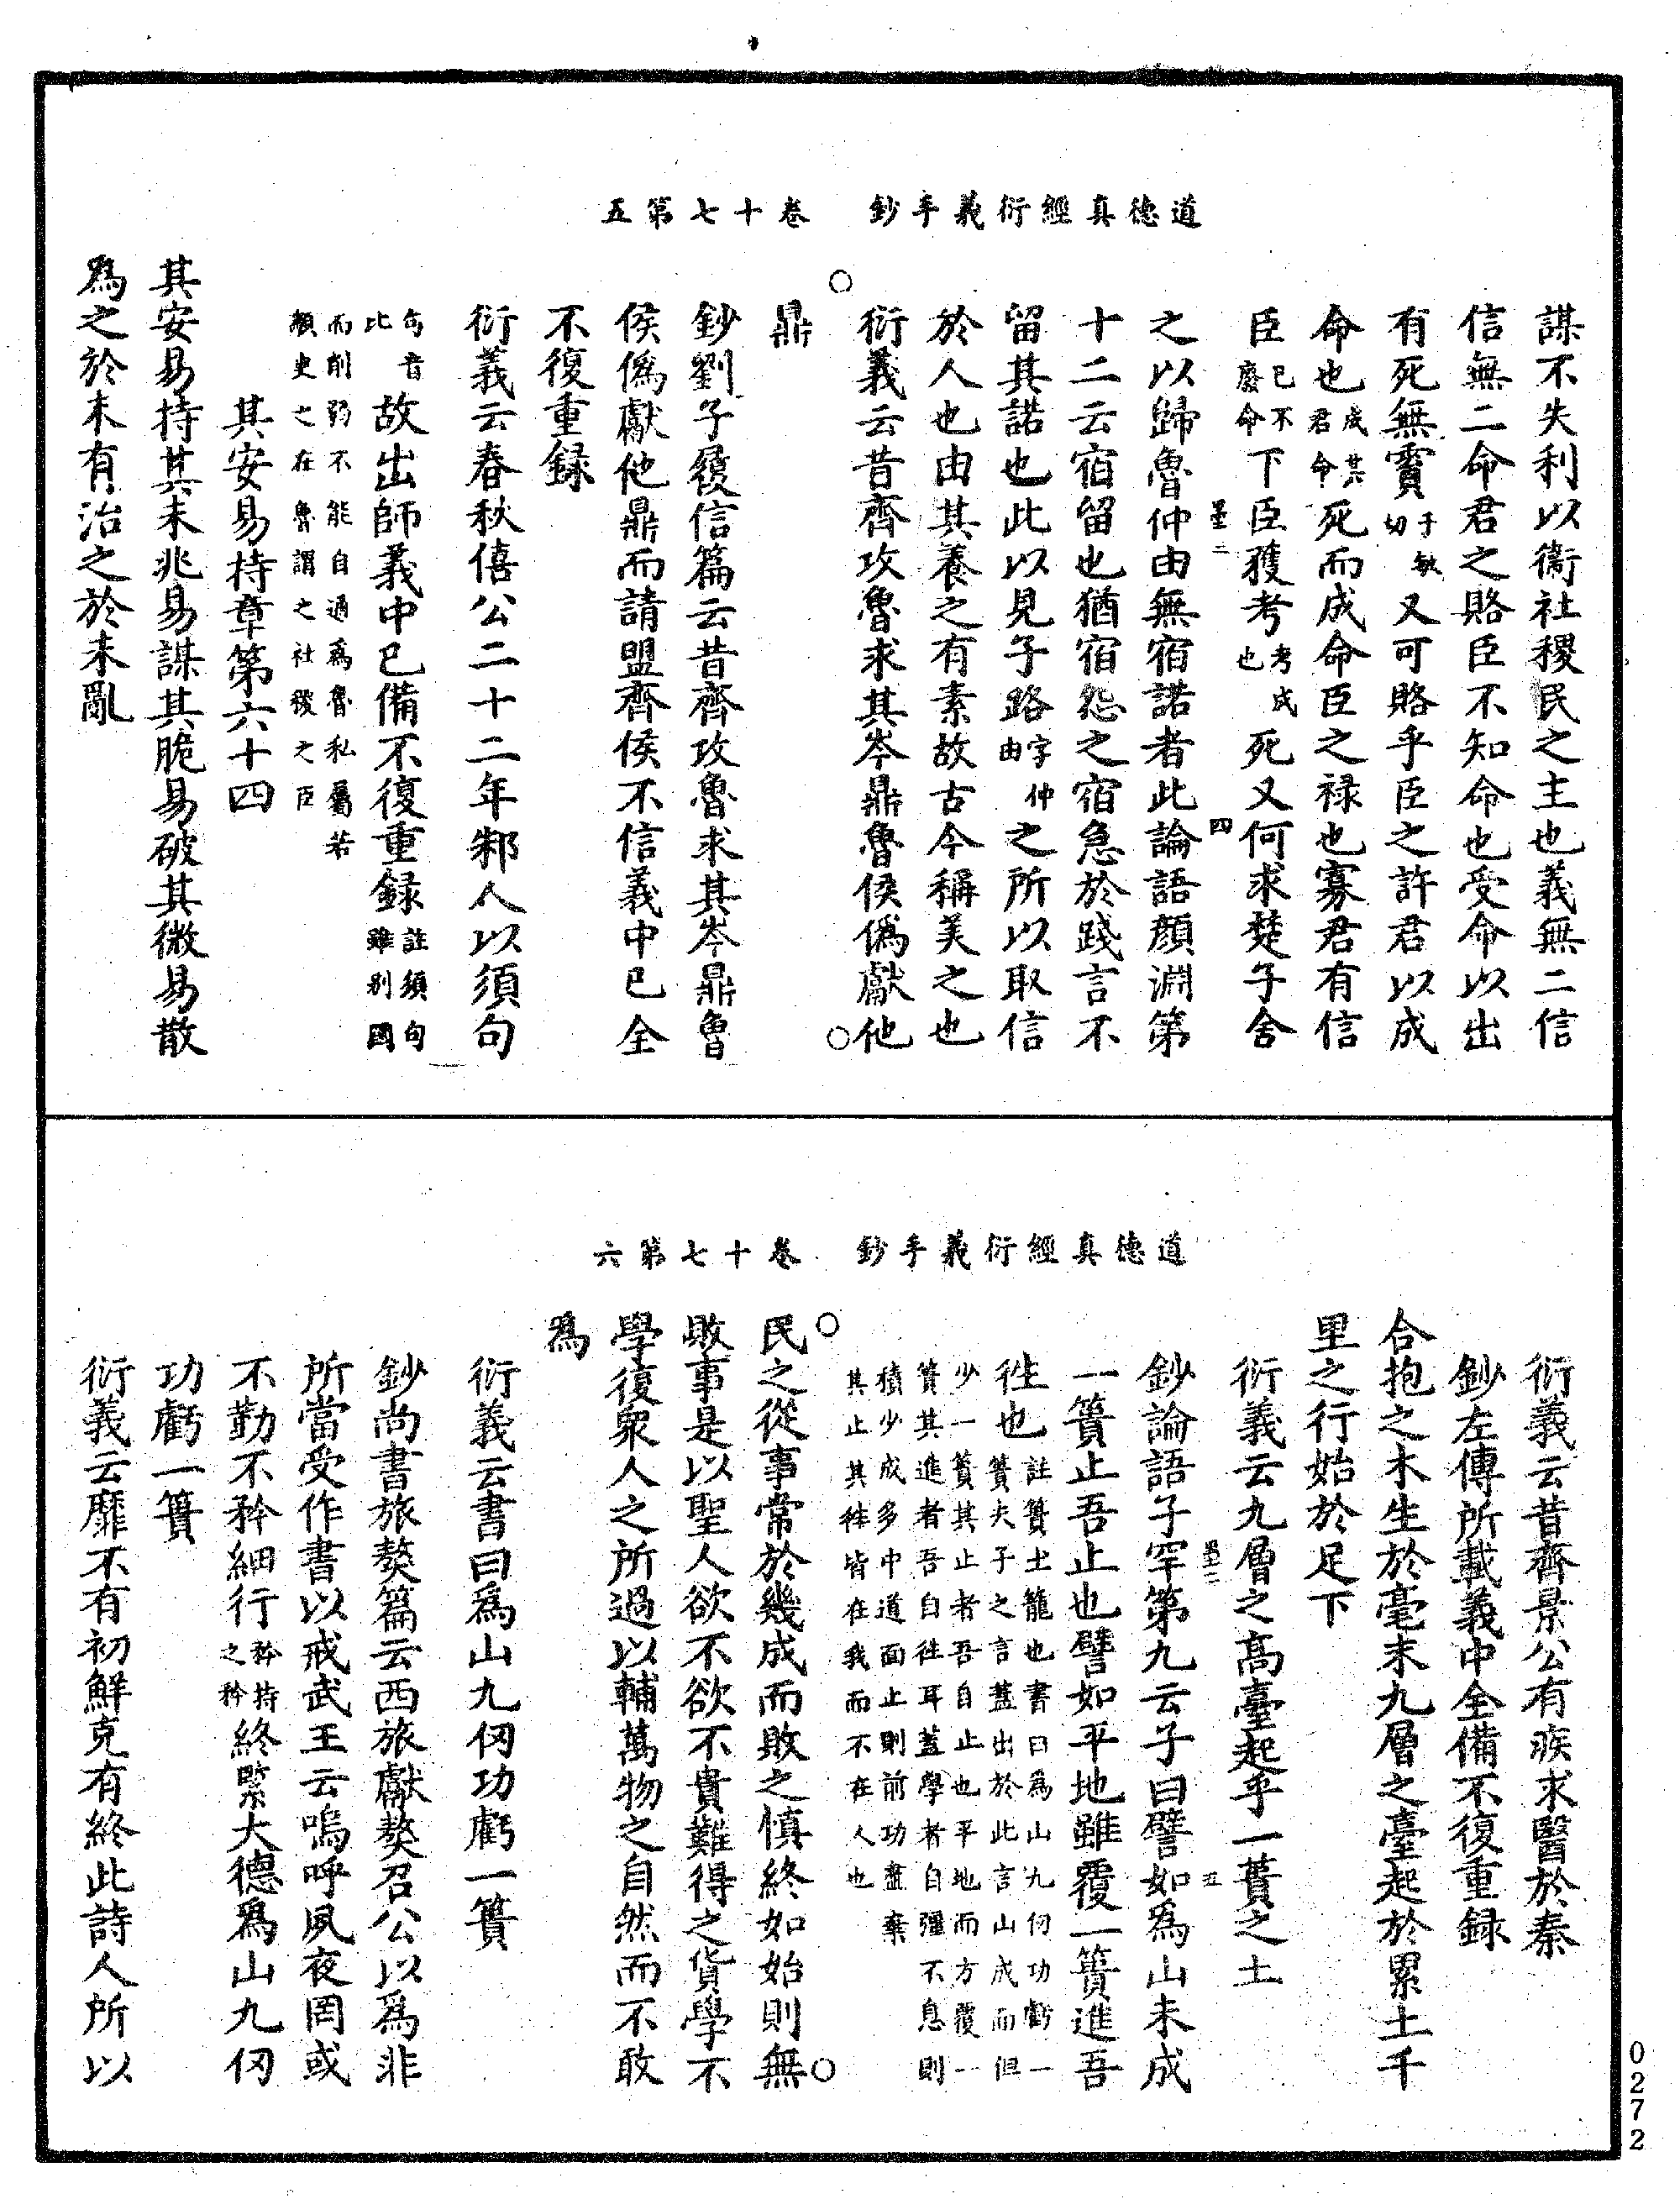 道德真經衍義手鈔　卷十七第五
謀不失利以衛社稷民之主也義無二信
信無二命君之賂臣不知命也受命以出
有死無霣于敏切又可賂乎臣之許君以成
命也成其君命死而成命臣之禄也寡君有信
臣已不廢命下臣獲考考成也死又何求楚子舍
之以歸魯仲由無宿諾者此論語顔淵第
十二云宿留也猶宿怨之宿急於踐言不
留其諾也此以見子路字仲由之所以取信
於人也由其養之有素故古今稱美之也
衍義云昔齊攻魯求其岑鼎魯侯偽獻他
鼎
鈔劉子履信篇云昔齊攻魯求其岑鼎魯
侯偽獻他鼎而請盟齊侯不信義中已全
不復重録
衍義云春秋僖公二十二年邾人以須句
句音比故出師義中已備不復重録註須句雖别國
而削弱不能自通爲魯私屬若
顓臾之在魯謂之社稷之臣
其安易持章第六十四
其安易持其未兆易謀其脆易破其微易散
爲之於未有治之於未亂
道德真經衍義手鈔　卷十七第六
衍義云昔齊景公有疾求醫於秦
鈔左傳所載義中全備不復重録
合抱之木生於毫末九層之臺起於累土千
里之行始於足下
衍義云九層之高臺起乎一蕢之土
鈔論語子罕第九云子曰譬如爲山未成
一簣止吾止也譬如平地雖覆一簣進吾
徃也註簣土籠也書曰爲山九仞功虧一
簣夫子之言蓋出於此言山成而但
少一簣其止者吾自止也平地而方覆一
簣其進者吾自徃耳蓋學者自彊不息則
積少成多中道而止則前功盡棄
其止其徃皆在我而不在人也
民之從事常於幾成而敗之慎終如始則無
敗事是以聖人欲不欲不貴難得之貨學不
學復衆人之所過以輔萬物之自然而不敢
爲
衍義云書曰爲山九仞功虧一簣
鈔尚書旅獒篇云西旅獻獒召公以爲非
所當受作書以戒武王云嗚呼夙夜罔或
不勤不矜細行矜持之矜終累大德爲山九仞
功虧一簣
衍義云靡不有初鮮克有終此詩人所以
0272